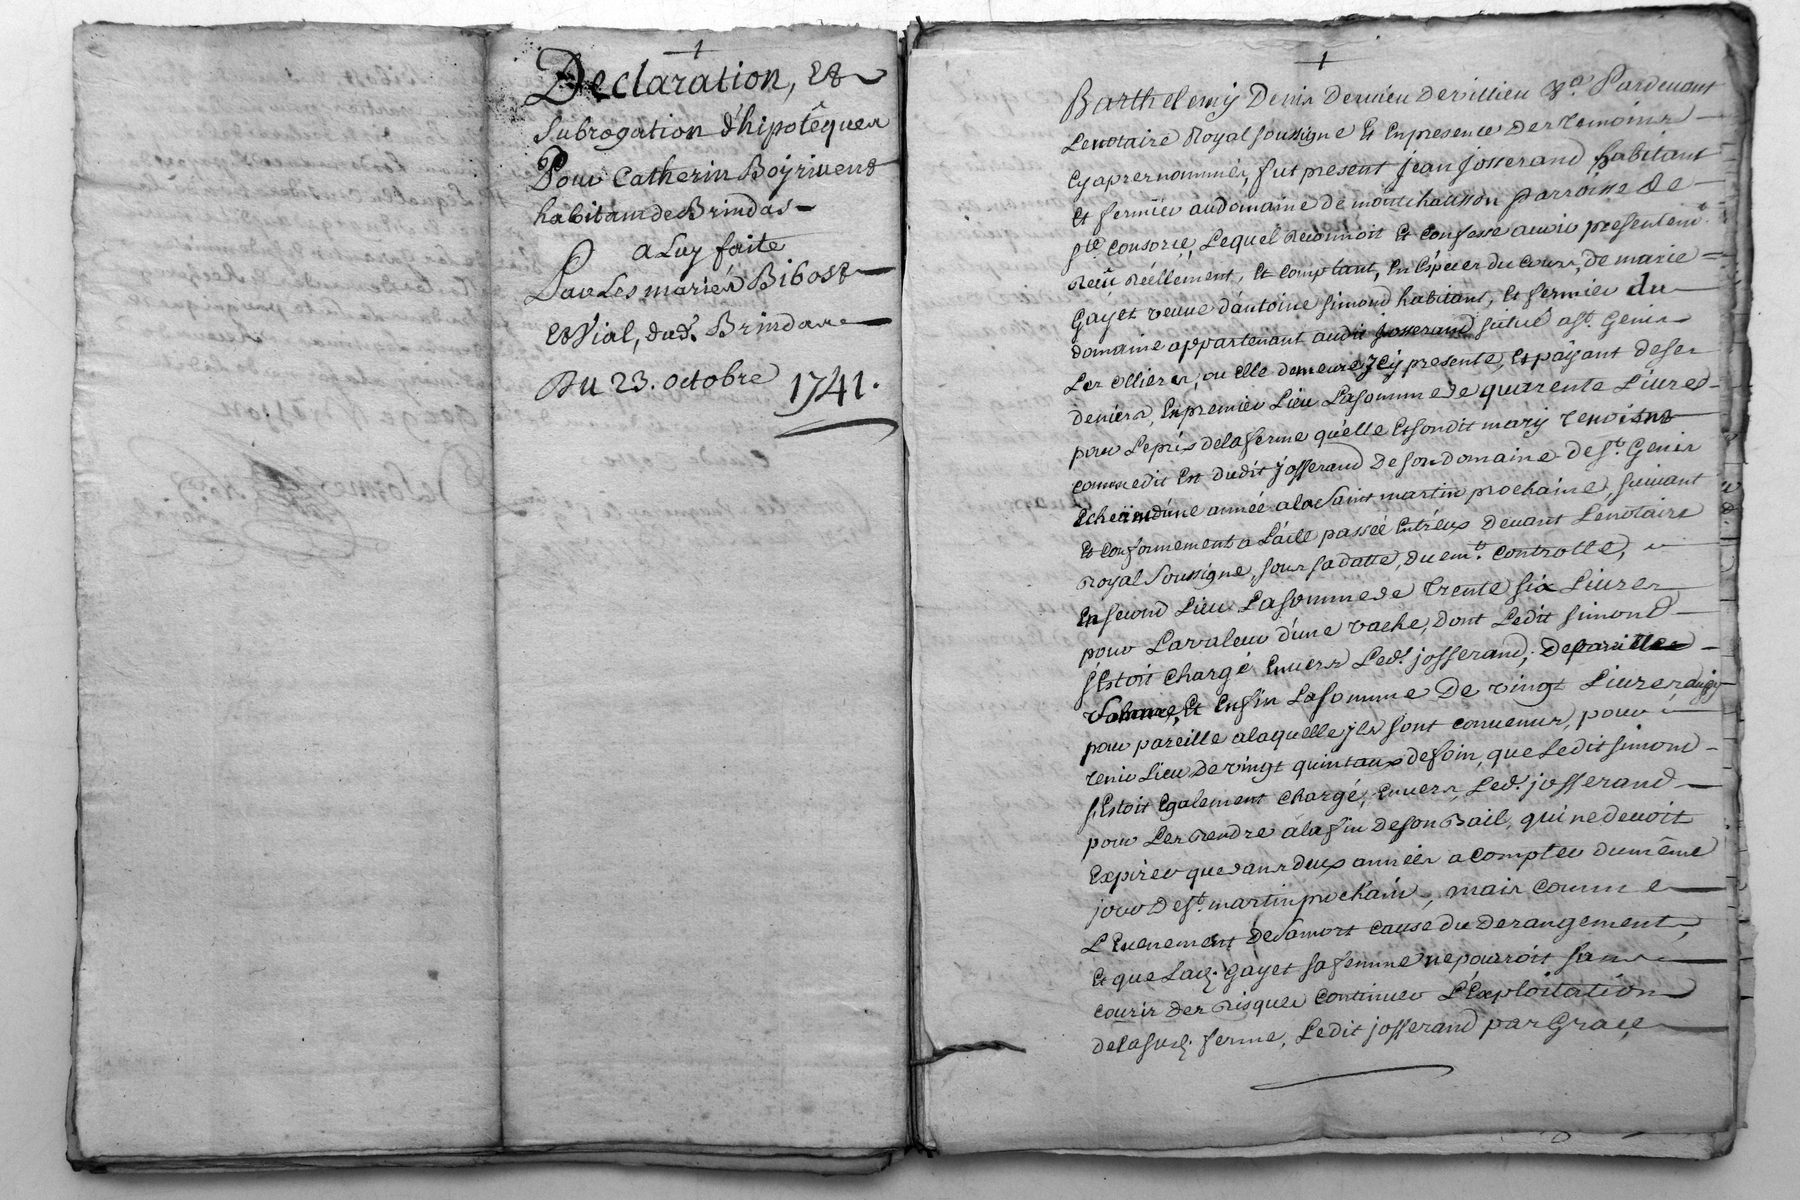 1
Declaration, Et
Subrogation d'hipotêques
Pour Catherin Boyrivent
habitant de Brindas
a Luy faite
Par Les mariés Bibost
Et Vial, dud.t Brindas
Du 23. octobre 1741.
1
Barthelemÿ Denis Dervieu Devillieu &.a Pardevant
Lenotaire Royal soussigne Et Enpresence Des temoins
Cyapres nommés, fut present Jean Josserand habitant
Et fermier audomaine De montchausson Parroisse De
S.te Consorce, Lequel Reconnoit Et Confesse avoir presentem.t
Reçû Réellement, Et Comptant, En Espèces du Cours, De marie
Gayet veuve d'antoine Simond habitant, Et fermier du
domaine appartenant audit Josserand situé a S.t Genis
Les ollieres, ou Elle demeure Icÿ presente, Et païant deses
deniers, En premier Lieu La somme de quarente Livres
pour Le prix dela ferme qu'elle Et son dit mary tenoient
comme dit Est dudit Josserand De son Domaine de S.t Genis
Echeüe d'une année ala Saint martin prochaine, suivant
Et Conformement a L'acte passée Entr'eux Devant Lenotaire
Royal Soussigne, sous sa datte, Duem.t Controllé,
En second Lieu La somme de trente six Livres
pour La valeur d'une vache, Dont Ledit Simond
s'Estoit Chargé Envers Led.t Josserand, De pareille
valeur, Et Enfin La somme De vingt Livres aussy
pour pareille alaquelle ils sont convenus, pour
tenir Lieu De vingt quintaux de foin, que Ledit Simond
s'Estoit Egalement Chargé, Envers, Led.t Josserand
pour Les Rendre a la fin de son Bail, qui ne devoit
Expirer que dans deux années a Compter du même
jour De S.t martin prochain, mais Comme
L'Evenement De sa mort Cause du Derangement,
Et que Lad. Gayet sa femme ne pourroit sans
courir des Risques Continuer L'Exploitation
dela sud. ferme, Ledit Josserand par Grace